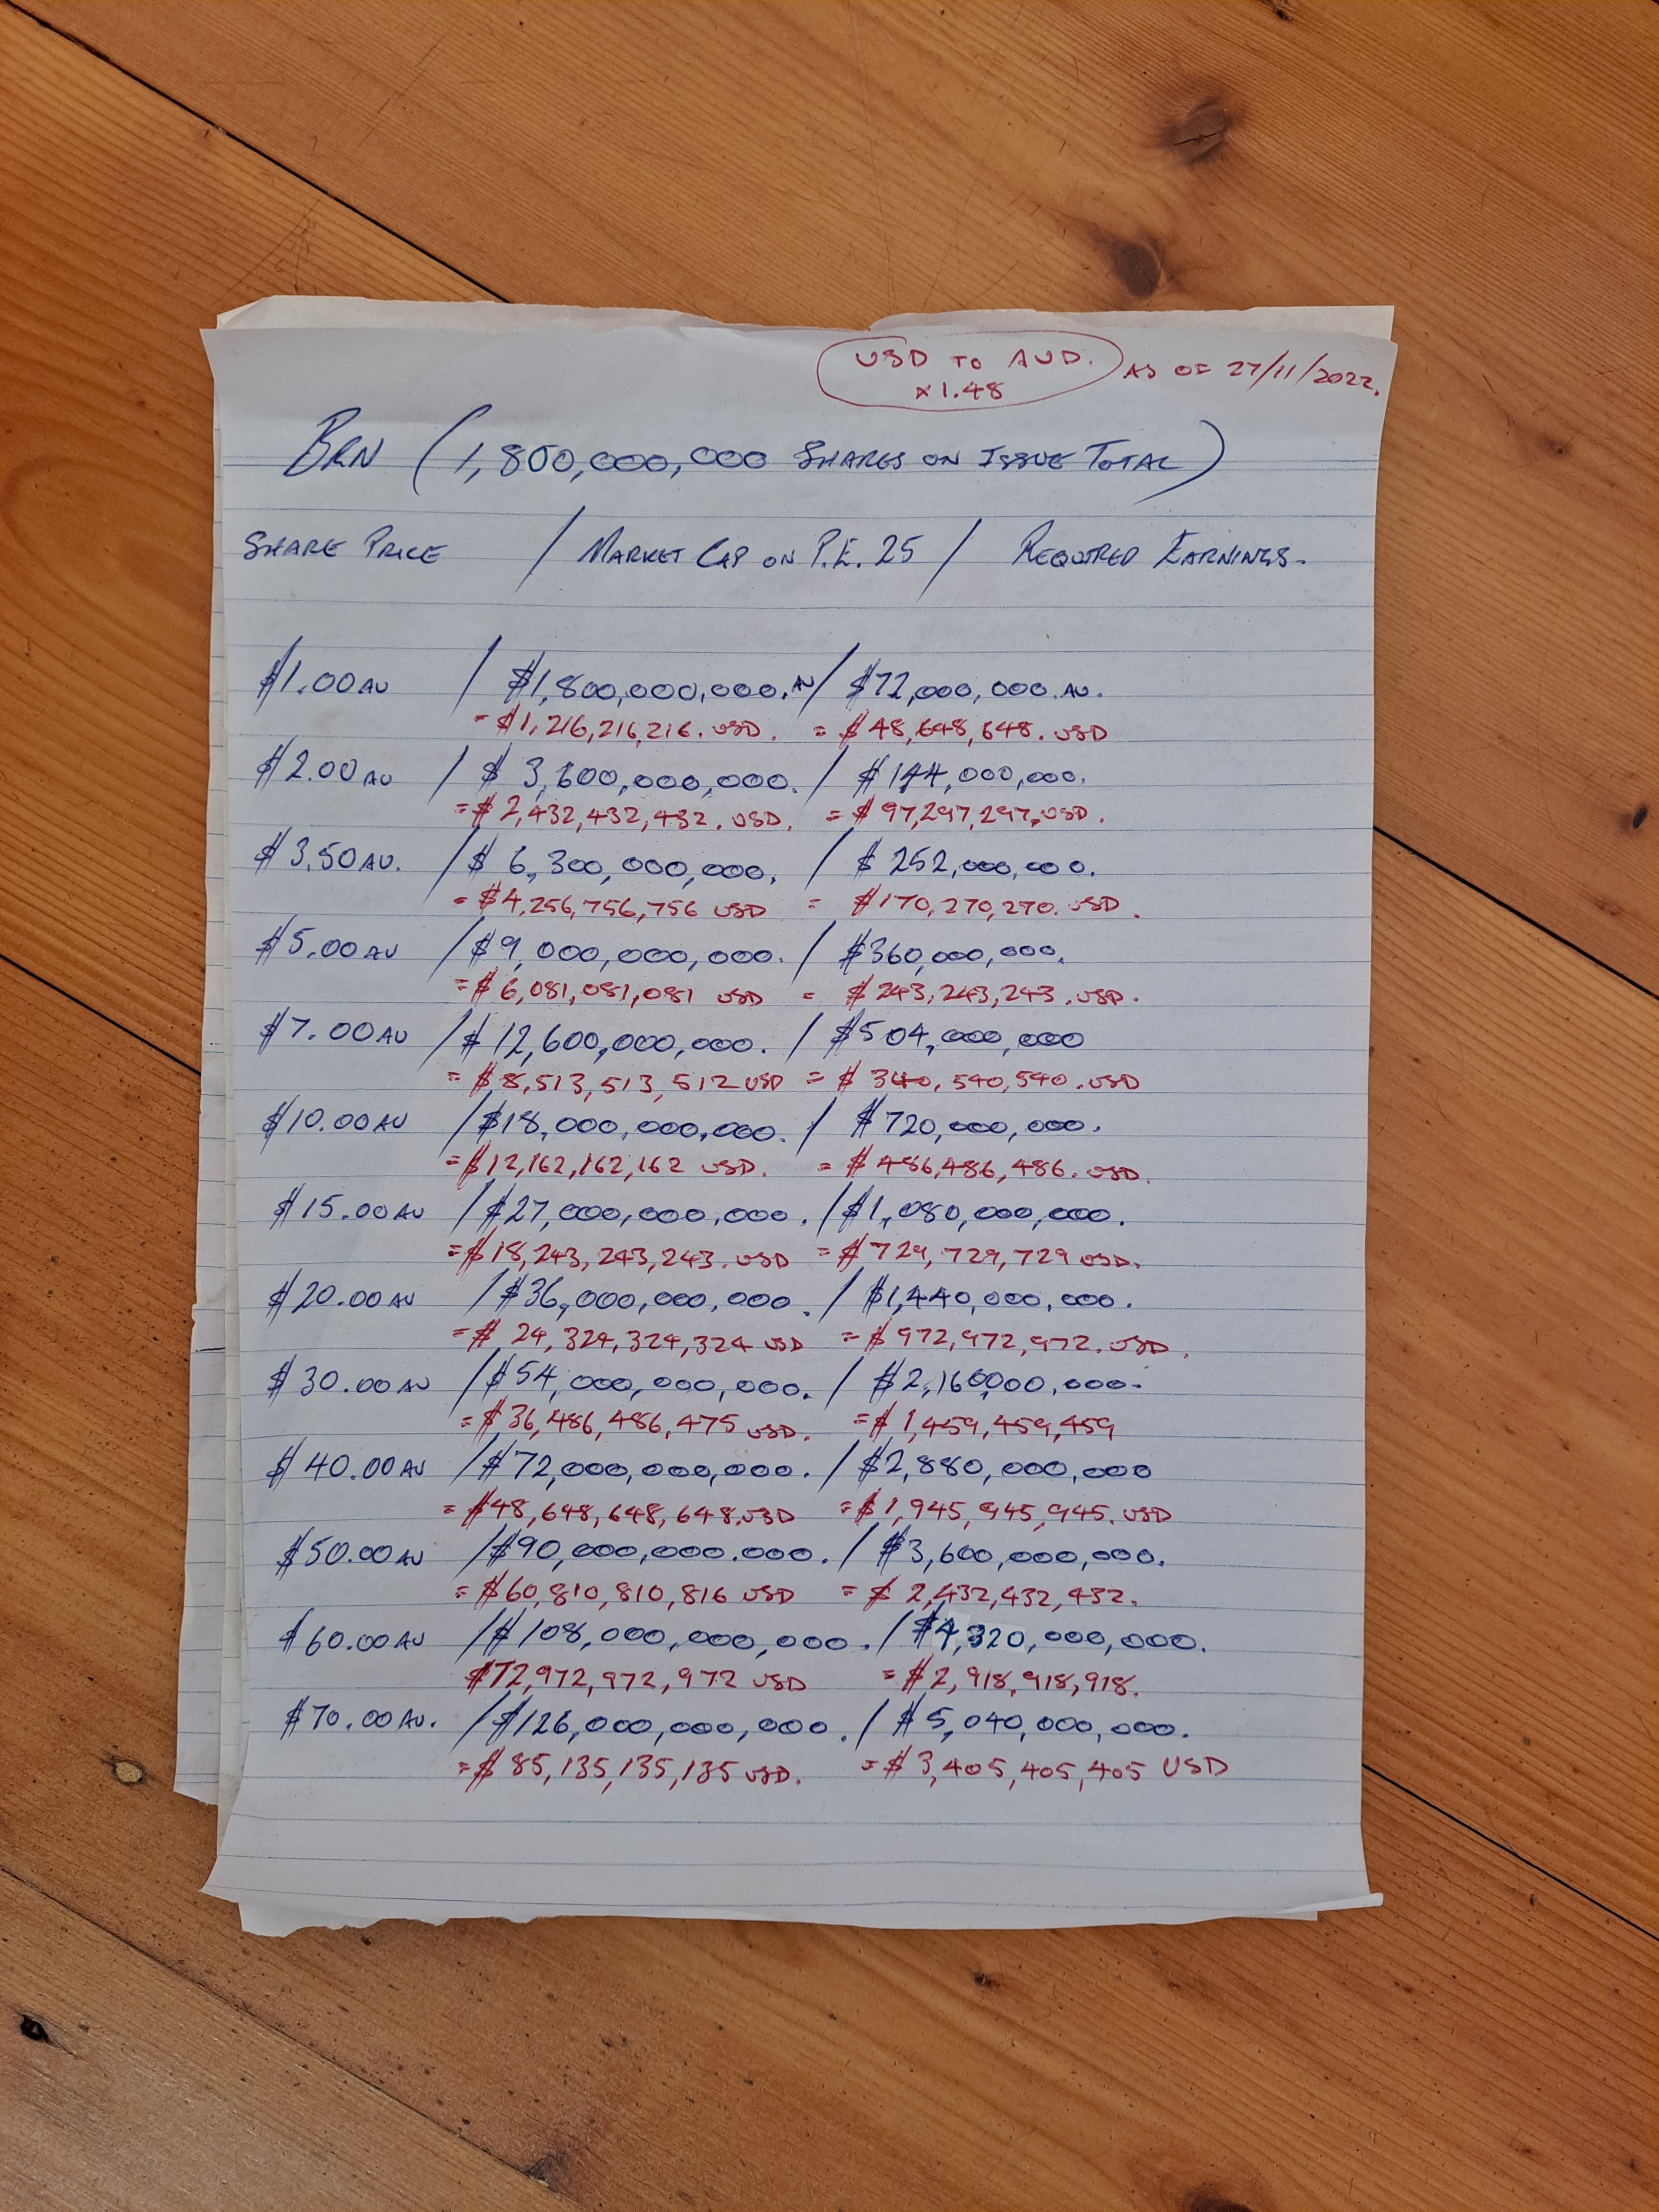 USD TO AUD.
x1.48
AS OF 27/11/2022.
BRN (1,800,000,000 SHARES ON ISSUE TOTAL)
SHARE PRICE / MARKET CAP ON P.E. 25 / REQUIRED EARNINGS.
$1.00 AU / $1,800,000,000. AU / $72,000,000. AU.
= $1,216,216,216. USD. = $48,648,648. USD
$2.00 AU / $3,600,000,000. / $144,000,000.
= $2,432,432,432. USD. = $97,297,297, USD.
$3.50 AU. / $6,300,000,000. / $252,000,000.
= $4,256,756,756 USD = $170,270,270. USD.
$5.00 AU / $9,000,000,000. / $360,000,000.
= $6,081,081,081 USD = $243,243,243. USD.
$7.00 AU / $12,600,000,000. / $504,000,000
= $8,513,513,512 USD = $340,540,540. USD
$10.00 AU / $18,000,000,000. / $720,000,000.
= $12,162,162,162 USD. = $486,486,486. USD.
$15.00 AU / $27,000,000,000. / $1,080,000,000.
= $18,243,243,243. USD = $729,729,729 USD.
$20.00 AU / $36,000,000,000. / $1,440,000,000.
= $24,324,324,324 USD = $972,972,972. USD.
$30.00 AU / $54,000,000,000. / $2,160,000,000.
= $36,486,486,475 USD. = $1,459,459,459
$40.00 AU / $72,000,000,000. / $2,880,000,000
= $48,648,648,648. USD = $1,945,945,945. USD
$50.00 AU / $90,000,000.000. / $3,600,000,000.
= $60,810,810,816 USD = $2,432,432,432.
$60.00 AU / $108,000,000,000. / $4,320,000,000.
$72,972,972,972 USD = $2,918,918,918.
$70.00 AU. / $126,000,000,000. / $5,040,000,000.
= $85,135,135,135 USD. = $3,405,405,405 USD